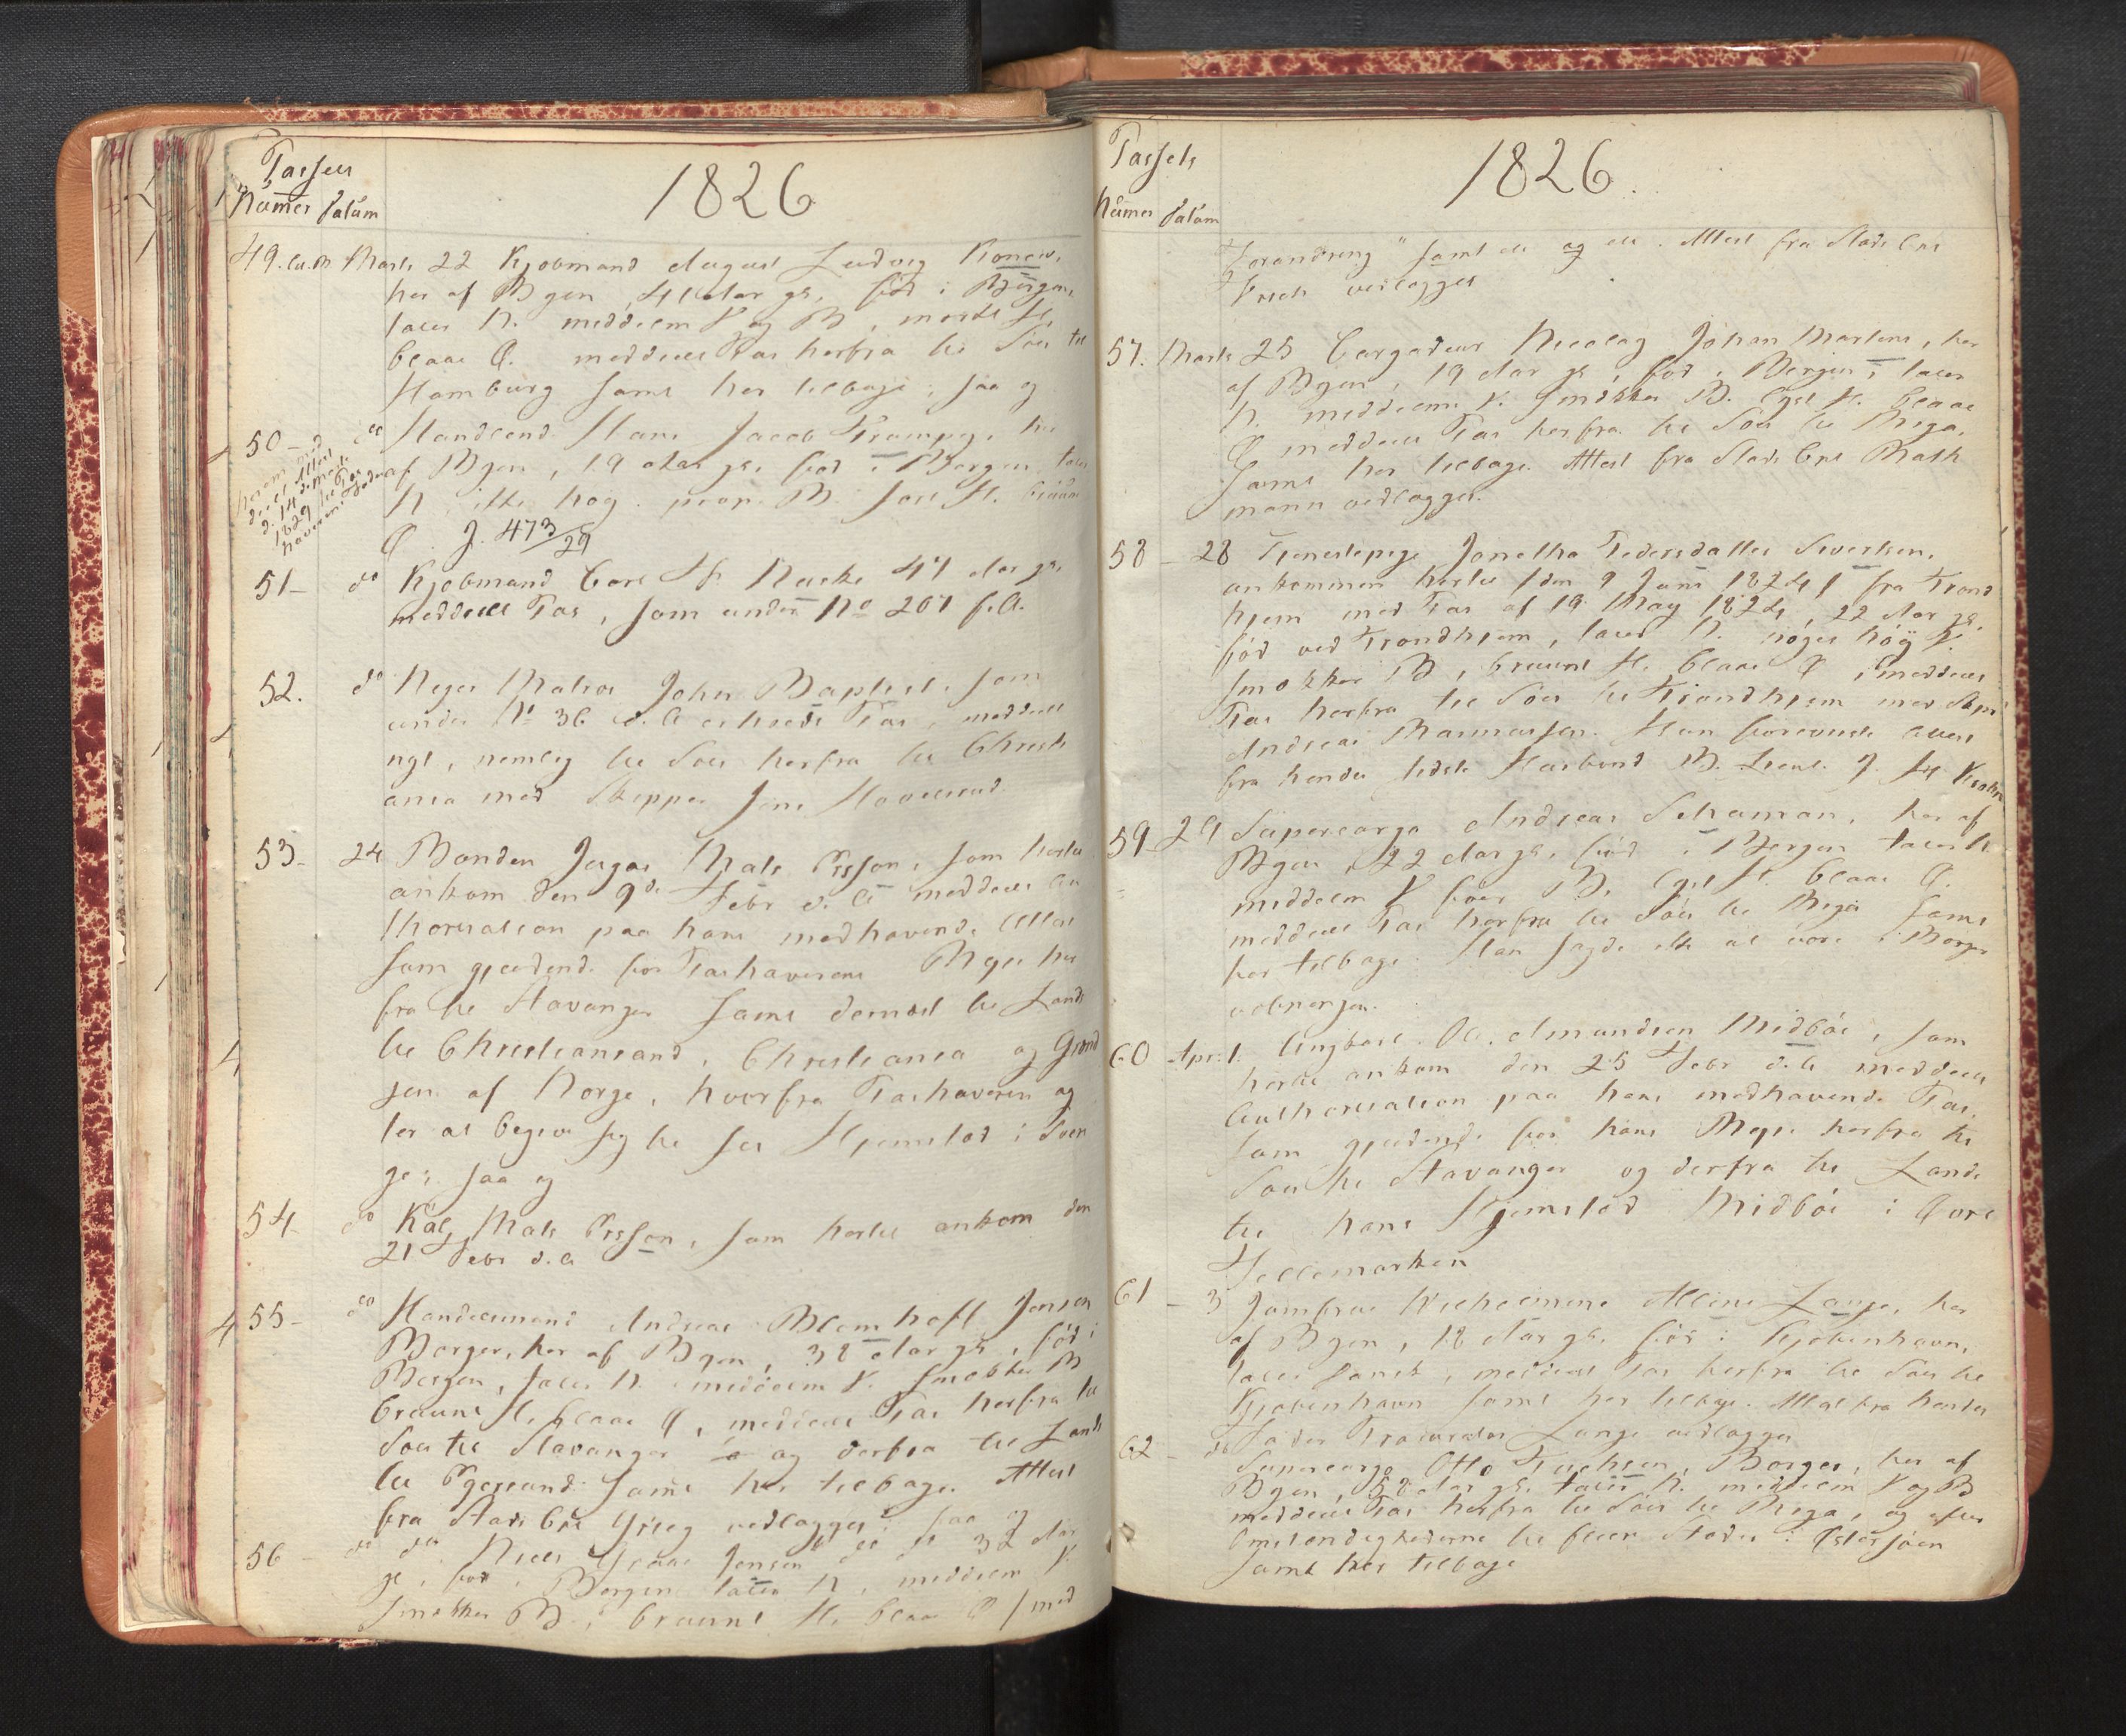 Passets
Numer Datum
1826
49. Marts 22 Kjøbmand August Ludvig Konow,
her af Byen, 41 Aar gl. fød i Bergen,
taler N. middelm V og B, mørkt H.
blaae Ø. meddeelt Pas herfra til Søes til
Hamburg samt her tilbage; saa og
50 - do Handlend. Hans Jacob Trumpy, her
af Byen, 19 Aar gl. fød i Bergen, taler
N. ikke høg. prop. B. H.
Ø. J. 473/29
51 - do Kjøbmand Carl Fr 47 Aar gl.
meddeelt Pas, som under No 207 f. A.
52. do Neger Matros John Baptist, som
under No 36 d. A erholdt Pas, meddeelt
nyt, nemlig til Søes herfra til Christi
ania med Skipper Jens
53 - 24 Bonden Mats Ersson, som hertil
ankom den 9de Febr d. A meddeelt Au
thorisation paa hans medhavende Attest
som gjeldende for Pashaverens Reyse her
fra til Stavanger samt dernæst til Lands
til Christiansand, Christiania og Grænd
sen af Norge, hvorfra Pashaveren ag
ter at begive sig til sit Hjemsted i Sver
ge; saa og
54 - do Mats Ersson, som hertil ankom den
21 Febr d. A
55 - do Handelsmand Andreas Blom hoff Jensen
Borger, her af Byen, 38 Aar gl, fød i
Bergen, taler N. middelm V. smekker B
bruunt H. blaae Ø, meddeelt Pas herfra til
Søes til Stavanger og derfra til Lands
til Egersund samt her tilbage. Attest
fra Stads Cpt Grieg vedlagges; saa og
56 - do do Niels Jensen do do 32 Aar
gl, fød i Bergen taler N, middelm V.
smekker B., bruunt H. blaae Ø / med
Passets
Numer Datum
1826.
Forandring" samt at og Attest fra Stads Cpt
vedlagges
57. Marts 25 Cargadeur Nicolay Johan Martens, her
af Byen, 19 Aar gl, fød i Bergen, taler
N. middelm V. smekker B. lyst H. blaae
Ø meddeelt Pas herfra til Søes til Riga,
samt her tilbage. Attest fra Stads Cpt Rath
mann vedlagges.
58 - 28 Tienestepige Jonetha Pedersdatter Sivertsen,
ankommen hertil /den 9 Juni 1824/ fra Trond
hjem med Pas af 19 May 1824, 22 Aar gl.
fød ved Trondhjem, taler N. noget høy V.
smekker B, bruunt H. blaae Ø, meddeelt
Pas herfra til Søes til Trondhjem med Skpr
Andreas Rasmussen. Hun foreviiste
fra hendes sidste Huusbond
59 - 29 Supercargo Andreas Schuman, her af
Byen, 22 Aar gl. fød i Bergen taler N
middelm V før B. lyst H. blaae Ø.
meddeelt Pas herfra til Søes til Riga samt
her tilbage. Han sagde ikke at være i Borger
vebningen.
60 Apr. 1. Ungkarl Ole Amundsen Midbøe, som
hertil ankom den 25 Febr d. A meddeelt
Authorisation paa hans medhavende Pas,
som gjeldende for hans Reyse herfra til
Søes til Stavanger og derfra til Lands
til hans Hjemsted Midbøe i Øvre
Tellemarken
61 - 3 Jomfrue Wilhelmine Albine Lange, her
af Byen, 18 Aar gl. fød i Kjøbenhavn,
taler Dansk, meddeelt Pas herfra til Søes til
Kjøbenhavn samt her tilbage. Attest fra hendes
Fader Procurator Lange vedlagges
62 - do Supercargo Otto Tuchsen, Borger, her af
Byen, 58 Aar gl. taler N. middelm V og B
meddeelt Pas herfra til Søes til Riga, og efter
Omstændighederne til fleere Stæder i Østersøen
samt her tilbage